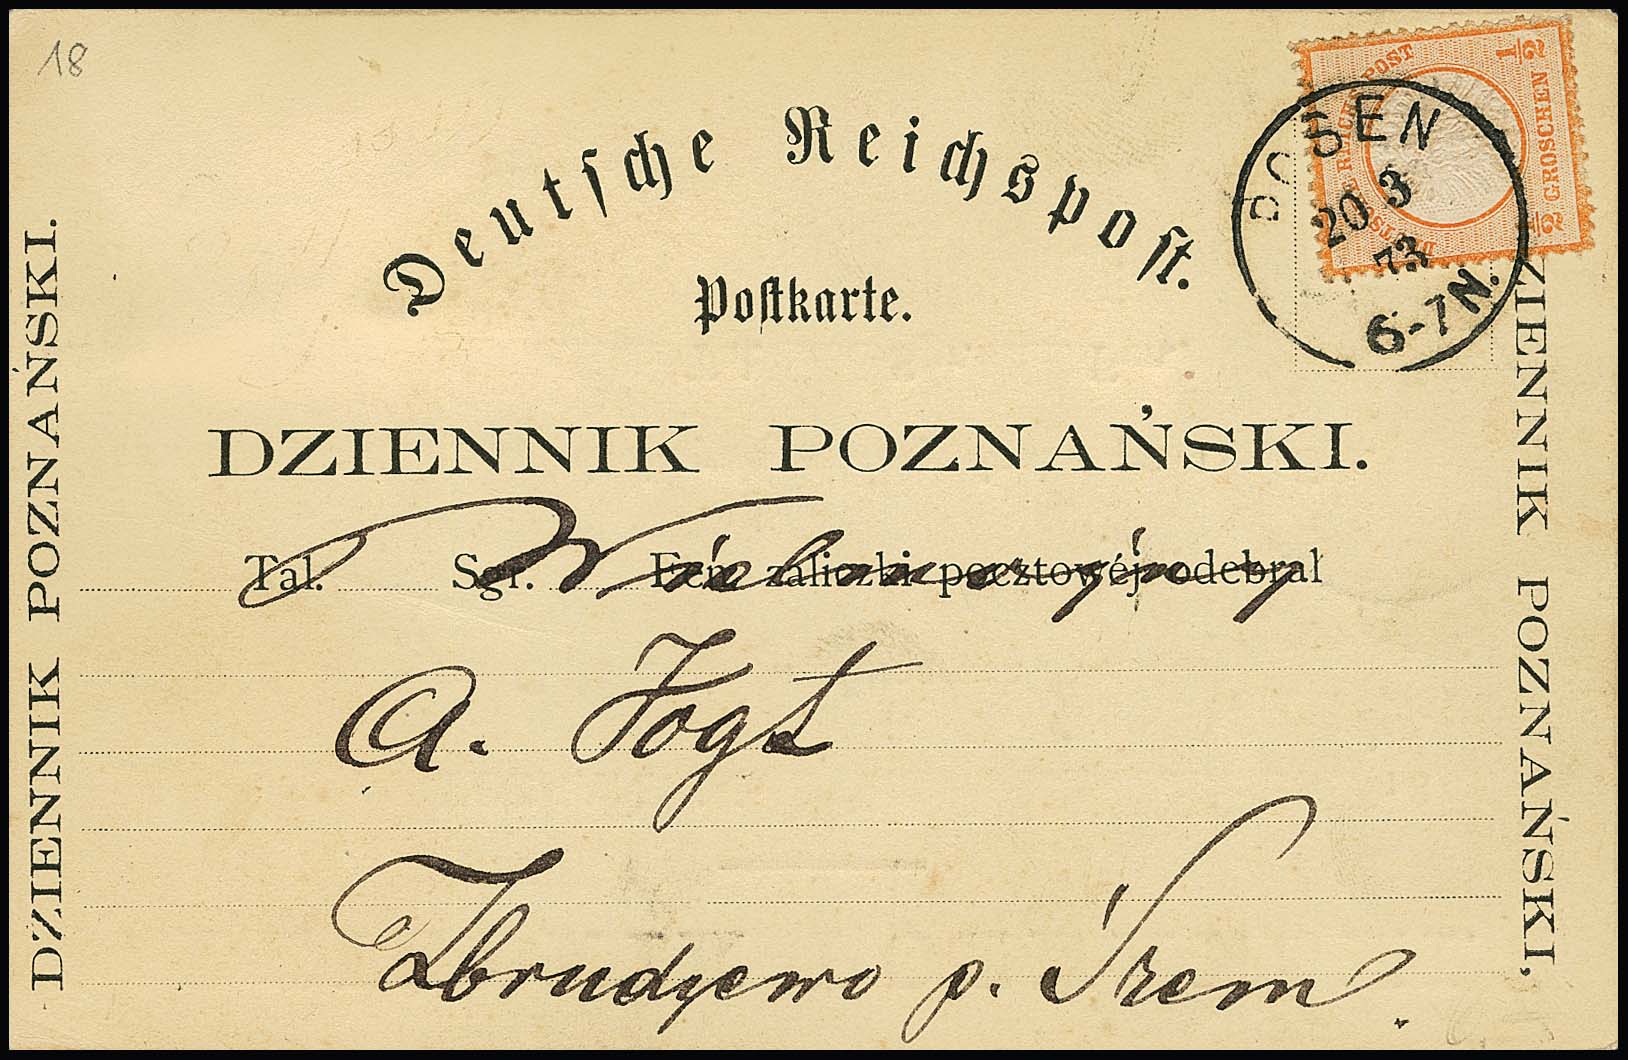 18
Deutsche Reichspost.
Postkarte.
DEUTSCHE REICHS-POST
1/2 GROSCHEN 1/2
POSEN
20 3
73
6-7N.
DZIENNIK POZNAŃSKI.
DZIENNIK POZNAŃSKI.
DZIENNIK POZNAŃSKI.
Tal. Sgr. Fen. zaliczki pocztowéj odebrał
Wielmożny
A. Vogt
Zbrudzewo p. Śrem.